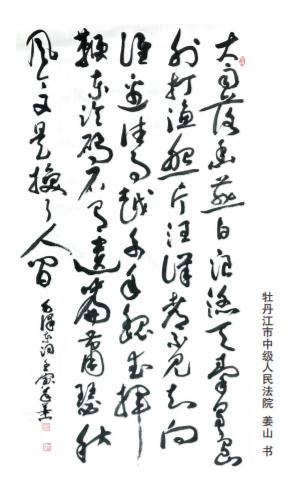 大雨落幽燕白浪滔天秦皇岛
外打渔船一片汪洋都不见知向
谁边往事越千年魏武挥
鞭东临碣石有遗篇萧瑟秋
风今又是换了人间
毛泽东词
牡丹江市中级人民法院 姜山 书